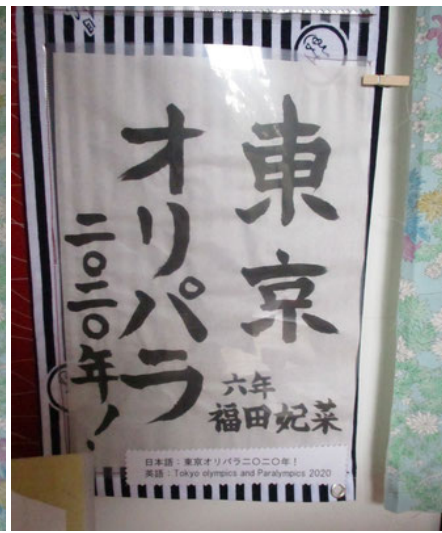 東京
オリパラ
二〇二〇年!
六年
福田妃菜
日本語:東京オリパラ二〇二〇年!
英語:Tokyo olympics and Paralympics 2020